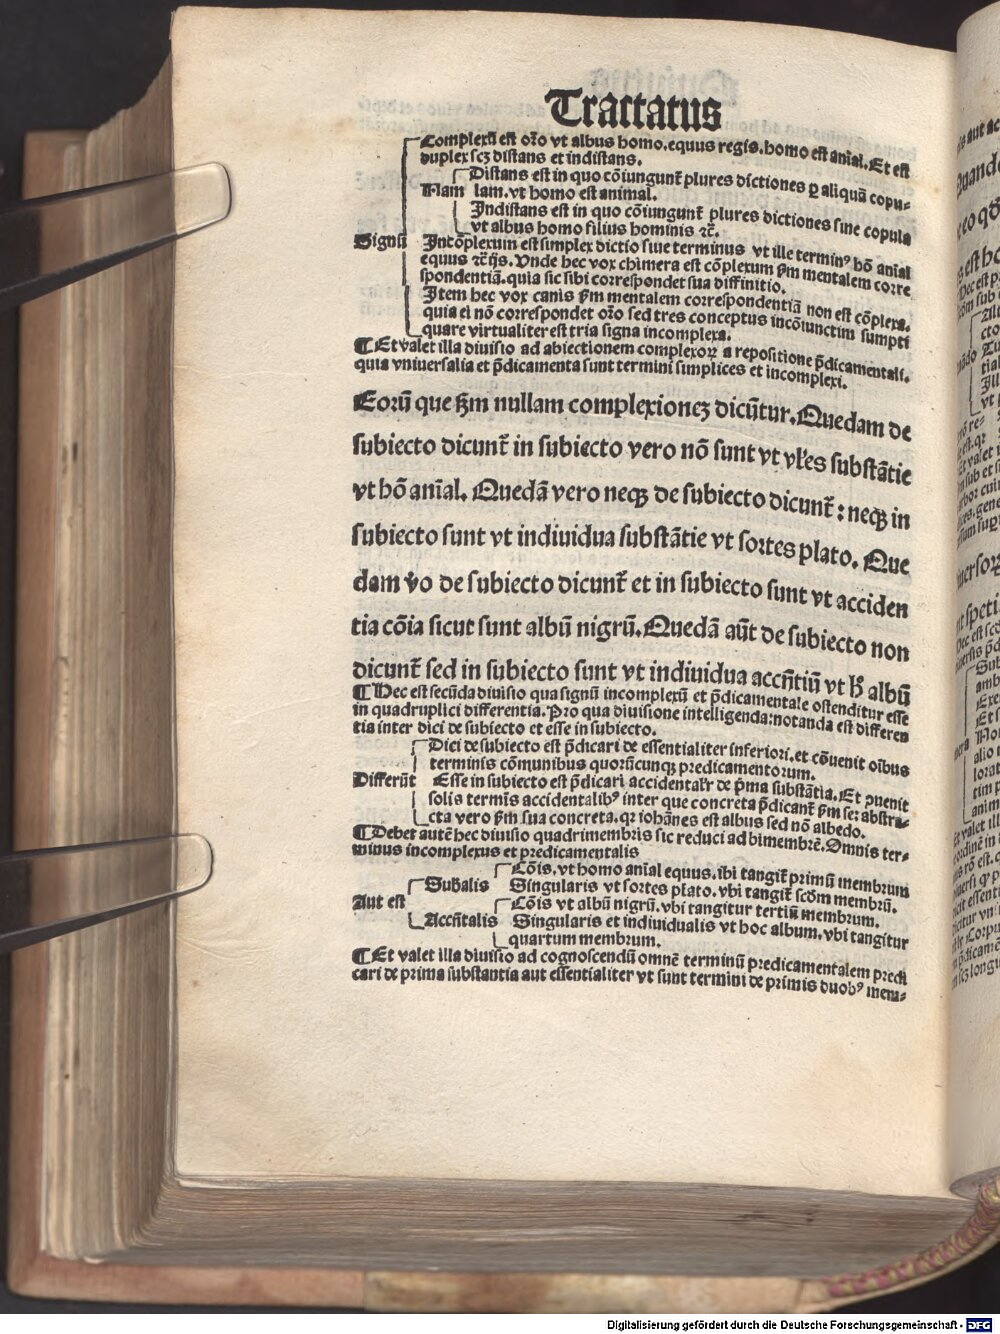 Tractatus
Complexū est oīo vt albus homo.equus regis.homo est anīal.Et est
duplex scʒ distans et indistans.
Distans est in quo cōiungunt̄ plures dictiones ꝑ aliquā copu⸗
Nam lam.vt homo est animal.
Indistans est in quo cōiungunt̄ plures dictiones sine copula
vt albus homo filius hominis ꝛc̄.
Signū Incōplexum est simplex dictio siue terminus vt ille terminꝰ hō anīal
equus ꝛc̄ Vnde hec vox chimera est cōplexum ẜm mentalem corre
spondentiā.quia sic sibi correspondet sua diffinitio.
Item hec vox canis ẜm mentalem correspondentiā non est cōplexa.
quia ei nō correspondet oīo sed tres conceptus incōiunctim sumpti
quare virtualiter est tria signa incomplexa.
¶Et valet illa diuisio ad abiectionem complexoꝝ a repositione p̄dicamentali.
quia vniuersalia et p̄dicamenta sunt termini simplices et incomplexi.
Eorū que ẜm nullam complexionez dicūtur.Quedam de
subiecto dicunt̄ in subiecto vero nō sunt vt vl̄es substātie
vt hō anīal. Quedā vero neqꝫ de subiecto dicunt̄ : neqꝫ in
subiecto sunt vt indiuidua substātie vt sortes plato. Que
dam v̄o de subiecto dicunt̄ et in subiecto sunt vt acciden
tia cōia sicut sunt albū nigrū.Quedā aūt de subiecto non
dicunt̄ sed in subiecto sunt vt indiuidua accn̄tiū vt h̄ albū
¶Hec est secūda diuisio qua signū incomplexū et p̄dicamentale ostenditur esse
in quadruplici differentia.Pro qua diuisione intelligenda:notanda est differen
tia inter dici de subiecto et esse in subiecto.
Dici de subiecto est p̄dicari de essentialiter inferiori.et cōuenit oībus
terminis cōmunibus quorūcunqꝫ predicamentorum.
Differūt Esse in subiecto est p̄dicari accidental'r de p̄ma substātia.Et ꝯuenit
solis termīs accidentalibꝰ inter que concreta p̄dicant̄ ẜm se: abstra⸗
cta vero ẜm sua concreta.qꝛ iohānes est albus sed nō albedo.
¶Debet autē hec diuisio quadrimembris sic reduci ad bimembrē.Omnis ter⸗
minus incomplexus et predicamentalis
Cōis.vt homo anīal equus.ibi tangit̄ primū membrum
Subalis Singularis vt sortes plato.vbi tangit̄ scd̄m membrū.
Aut est Cōis vt albū nigrū.vbi tangitur tertiū membrum.
Accn̄talis Singularis et indiuidualis vt hoc album.vbi tangitur
quartum membrum.
¶Et valet illa diuisio ad cognoscendū omnē terminū predicamentalem predi
cari de prima substantia aut essentialiter vt sunt termini de primis duobꝰ mem⸗
Digitalisierung gefördert durch die Deutsche Forschungsgemeinschaft - DFG